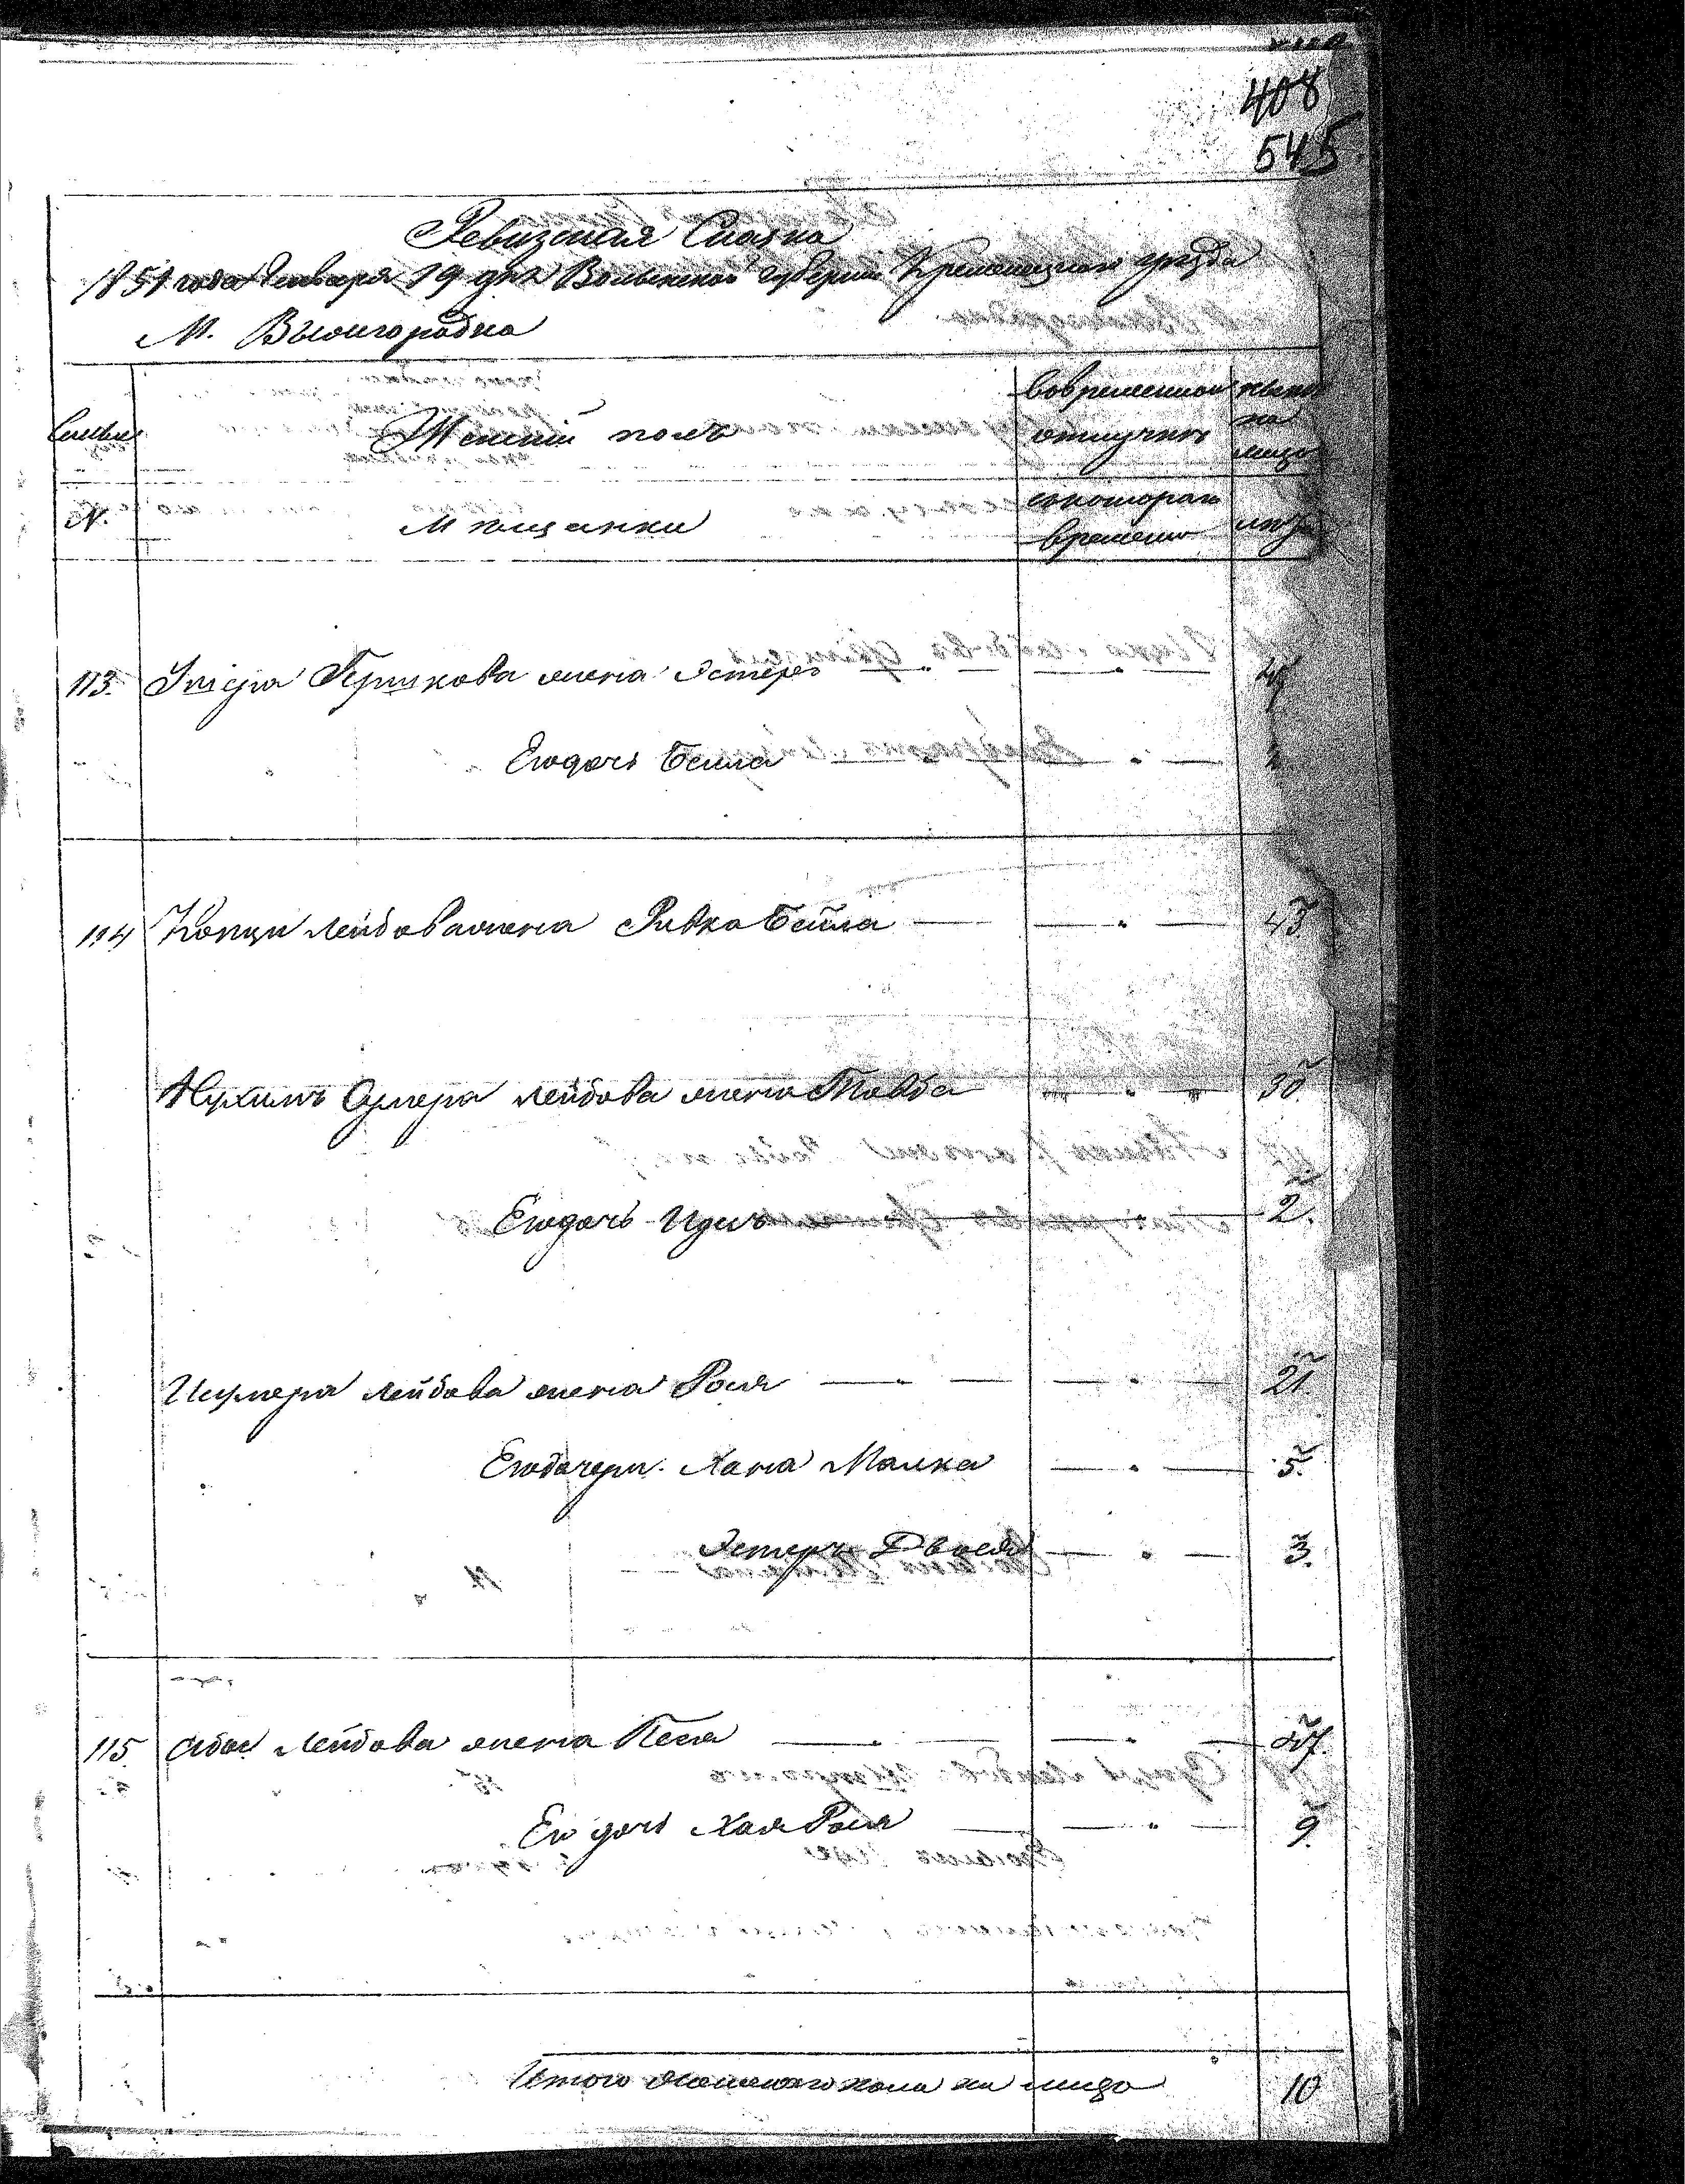 408
545
Ревизская Сказка
1851 года Января 19 дня Волынской Губернии Кременецкого уезда
М. Вышгородка
Семьи
Женский полъ
Вовременной отлучке
ныне на лицо
N.
Мещанки
скоторого времени
лета
113. Гершкова жена Эстеръ
Его дочь Бейла
114 Лейбова жена Ривка Бейла 43
Нухимъ Сумера Лейбова жена Товба 30
Его дочь 2.
Лейбова жена Рося 21
Его дочери Хана Малка 5.
Эстеръ Двося 3.
115 Абы Лейбова жена Песя
Его дочь Хая Рося 9.
Итого женского пола на лицо 10